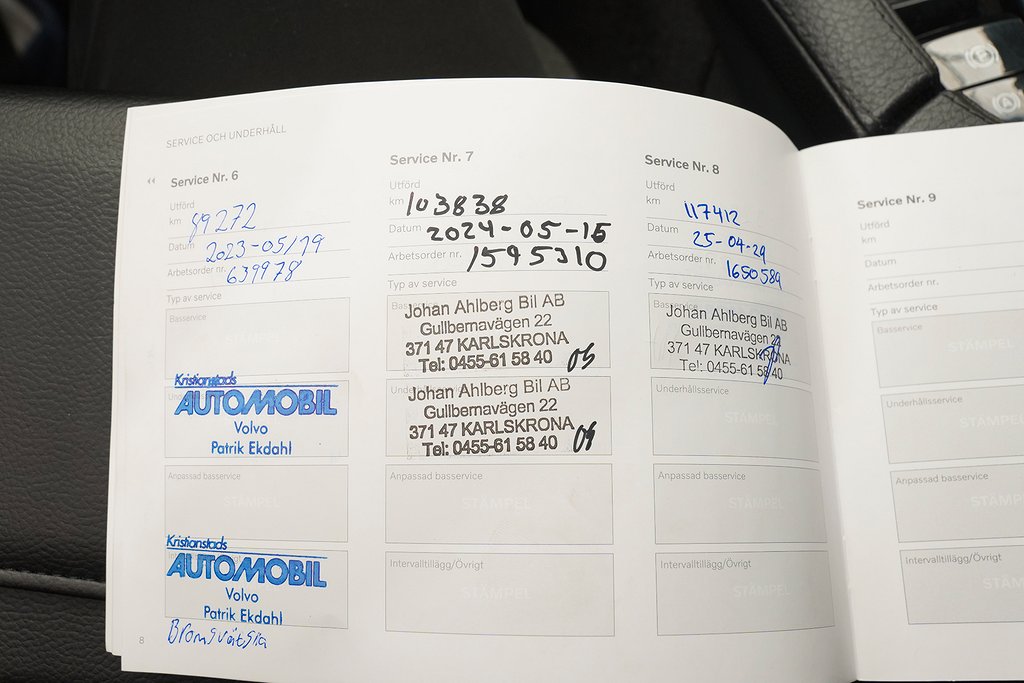 SERVICE OCH UNDERHÅLL
Service Nr. 6
Utförd
km 89272
Datum 2023-05/19
Arbetsorder nr. 639978
Typ av service
Basservice
STÄMPEL
Kristianstads
AUTOMOBIL
Volvo
Patrik Ekdahl
Anpassad basservice
STÄMPEL
Kristianstads
AUTOMOBIL
Volvo
Patrik Ekdahl
8
Service Nr. 7
Utförd
km 103838
Datum 2024-05-15
Arbetsorder nr. 1595310
Typ av service
Basservice
Johan Ahlberg Bil AB
Gullbernavägen 22
371 47 KARLSKRONA
Tel: 0455-61 58 40
Underhållsservice
Johan Ahlberg Bil AB
Gullbernavägen 22
371 47 KARLSKRONA
Tel: 0455-61 58 40
Anpassad basservice
STÄMPEL
Intervalltillägg/Övrigt
STÄMPEL
Service Nr. 8
Utförd
km 117412
Datum 25-04-29
Arbetsorder nr. 1650589
Typ av service
Basservice
Johan Ahlberg Bil AB
Gullbernavägen 22
371 47 KARLSKRONA
Tel: 0455-61 58 40
Underhållsservice
STÄMPEL
Anpassad basservice
STÄMPEL
Intervalltillägg/Övrigt
STÄMPEL
Service Nr. 9
Utförd
km
Datum
Arbetsorder nr.
Typ av service
Basservice
STÄMPEL
Underhållsservice
STÄMPEL
Anpassad basservice
STÄMPEL
Intervalltillägg/Övrigt
STÄMPEL